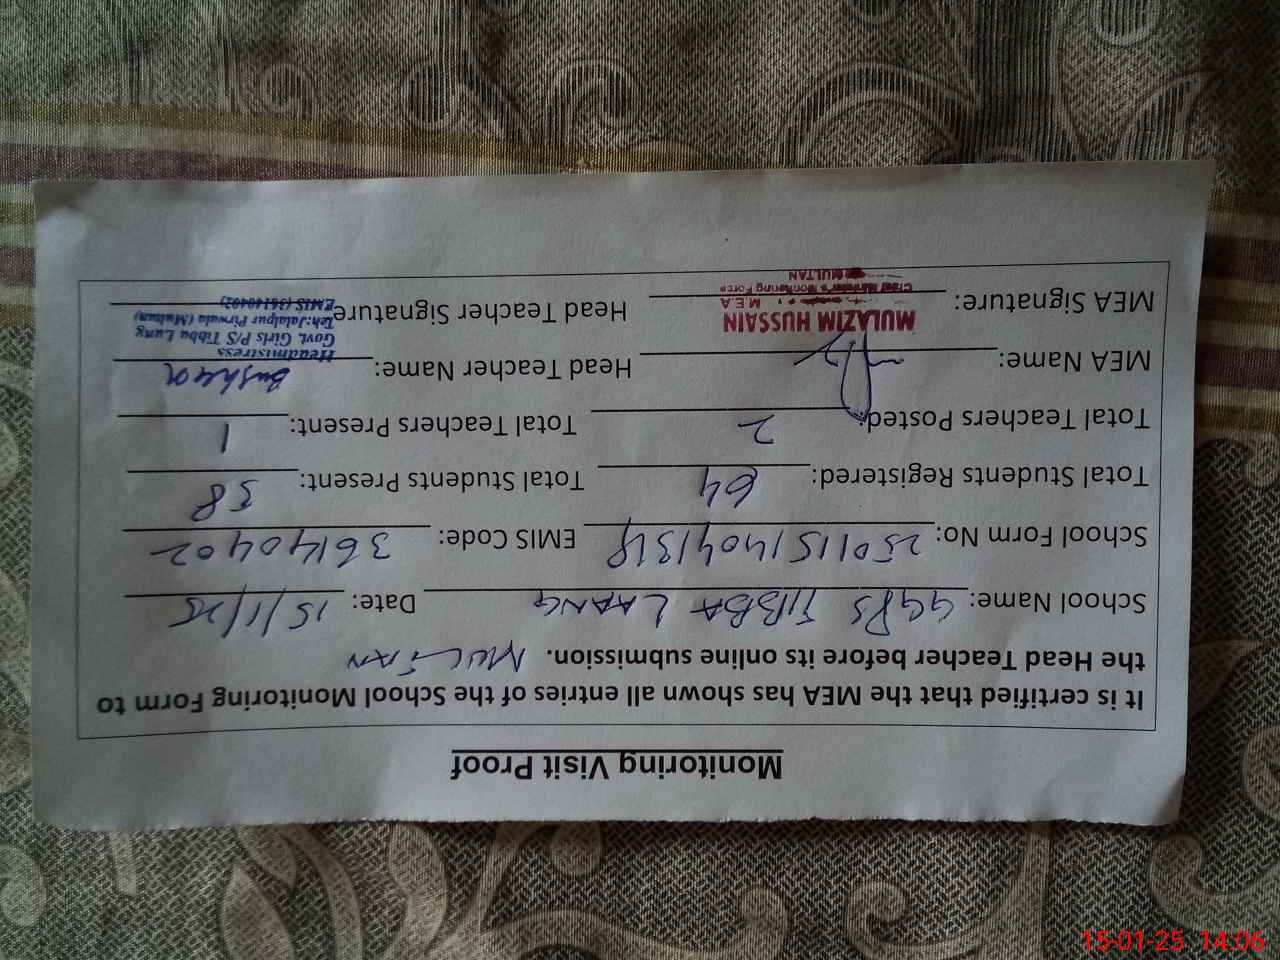 Monitoring Visit Proof
It is certified that the MEA has shown all entries of the School Monitoring Form to
the Head Teacher before its online submission. MULTAN
School Name: GGPS TIBBA LAAANG Date: 15/1/25
School Form No: EMIS Code: 36140402
Total Students Registered: 64 Total Students Present: 58
Total Teachers Posted: 2 Total Teachers Present: 1
MEA Name: Head Teacher Name: Bushra
MULAZIM HUSSAIN
M E A
Chief Minister's Monitoring Force
MULTAN
Headmistress
Govt. Girls P/S Tibba Lung
Teh:Jalalpur Pirwala (Multan)
EMIS (36140402)
MEA Signature: Head Teacher Signature:
15-01-25 14:06